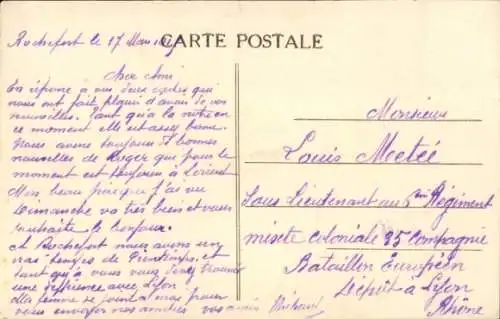 Rochefort le 17 Mars
CARTE POSTALE
Cher Ami
En réponse à vos deux cartes qui
nous ont fait plaisir d'avoir de vos
nouvelles. Tant qu'à la nôtre en
ce moment elle est assez bonne.
Nous avons toujours de bonnes
nouvelles de Roger qui pour le
moment est toujours à Lorient
Mon beau père que j'ai vu
Dimanche va très bien et vous
souhaite le bonjour.
A Rochefort nous avons un
temps de Printemps, et
tant qu'à vous vous devez trouver
une différence avec Lyon
Ma femme se joint à moi pour
vous envoyer nos amitiés vos amis
Monsieur
Louis Moctéé
Sous Lieutenant au 5ème Régiment
mixte coloniale 35 Compagnie
Bataillon Européen
Dépôt à Lyon
Rhône